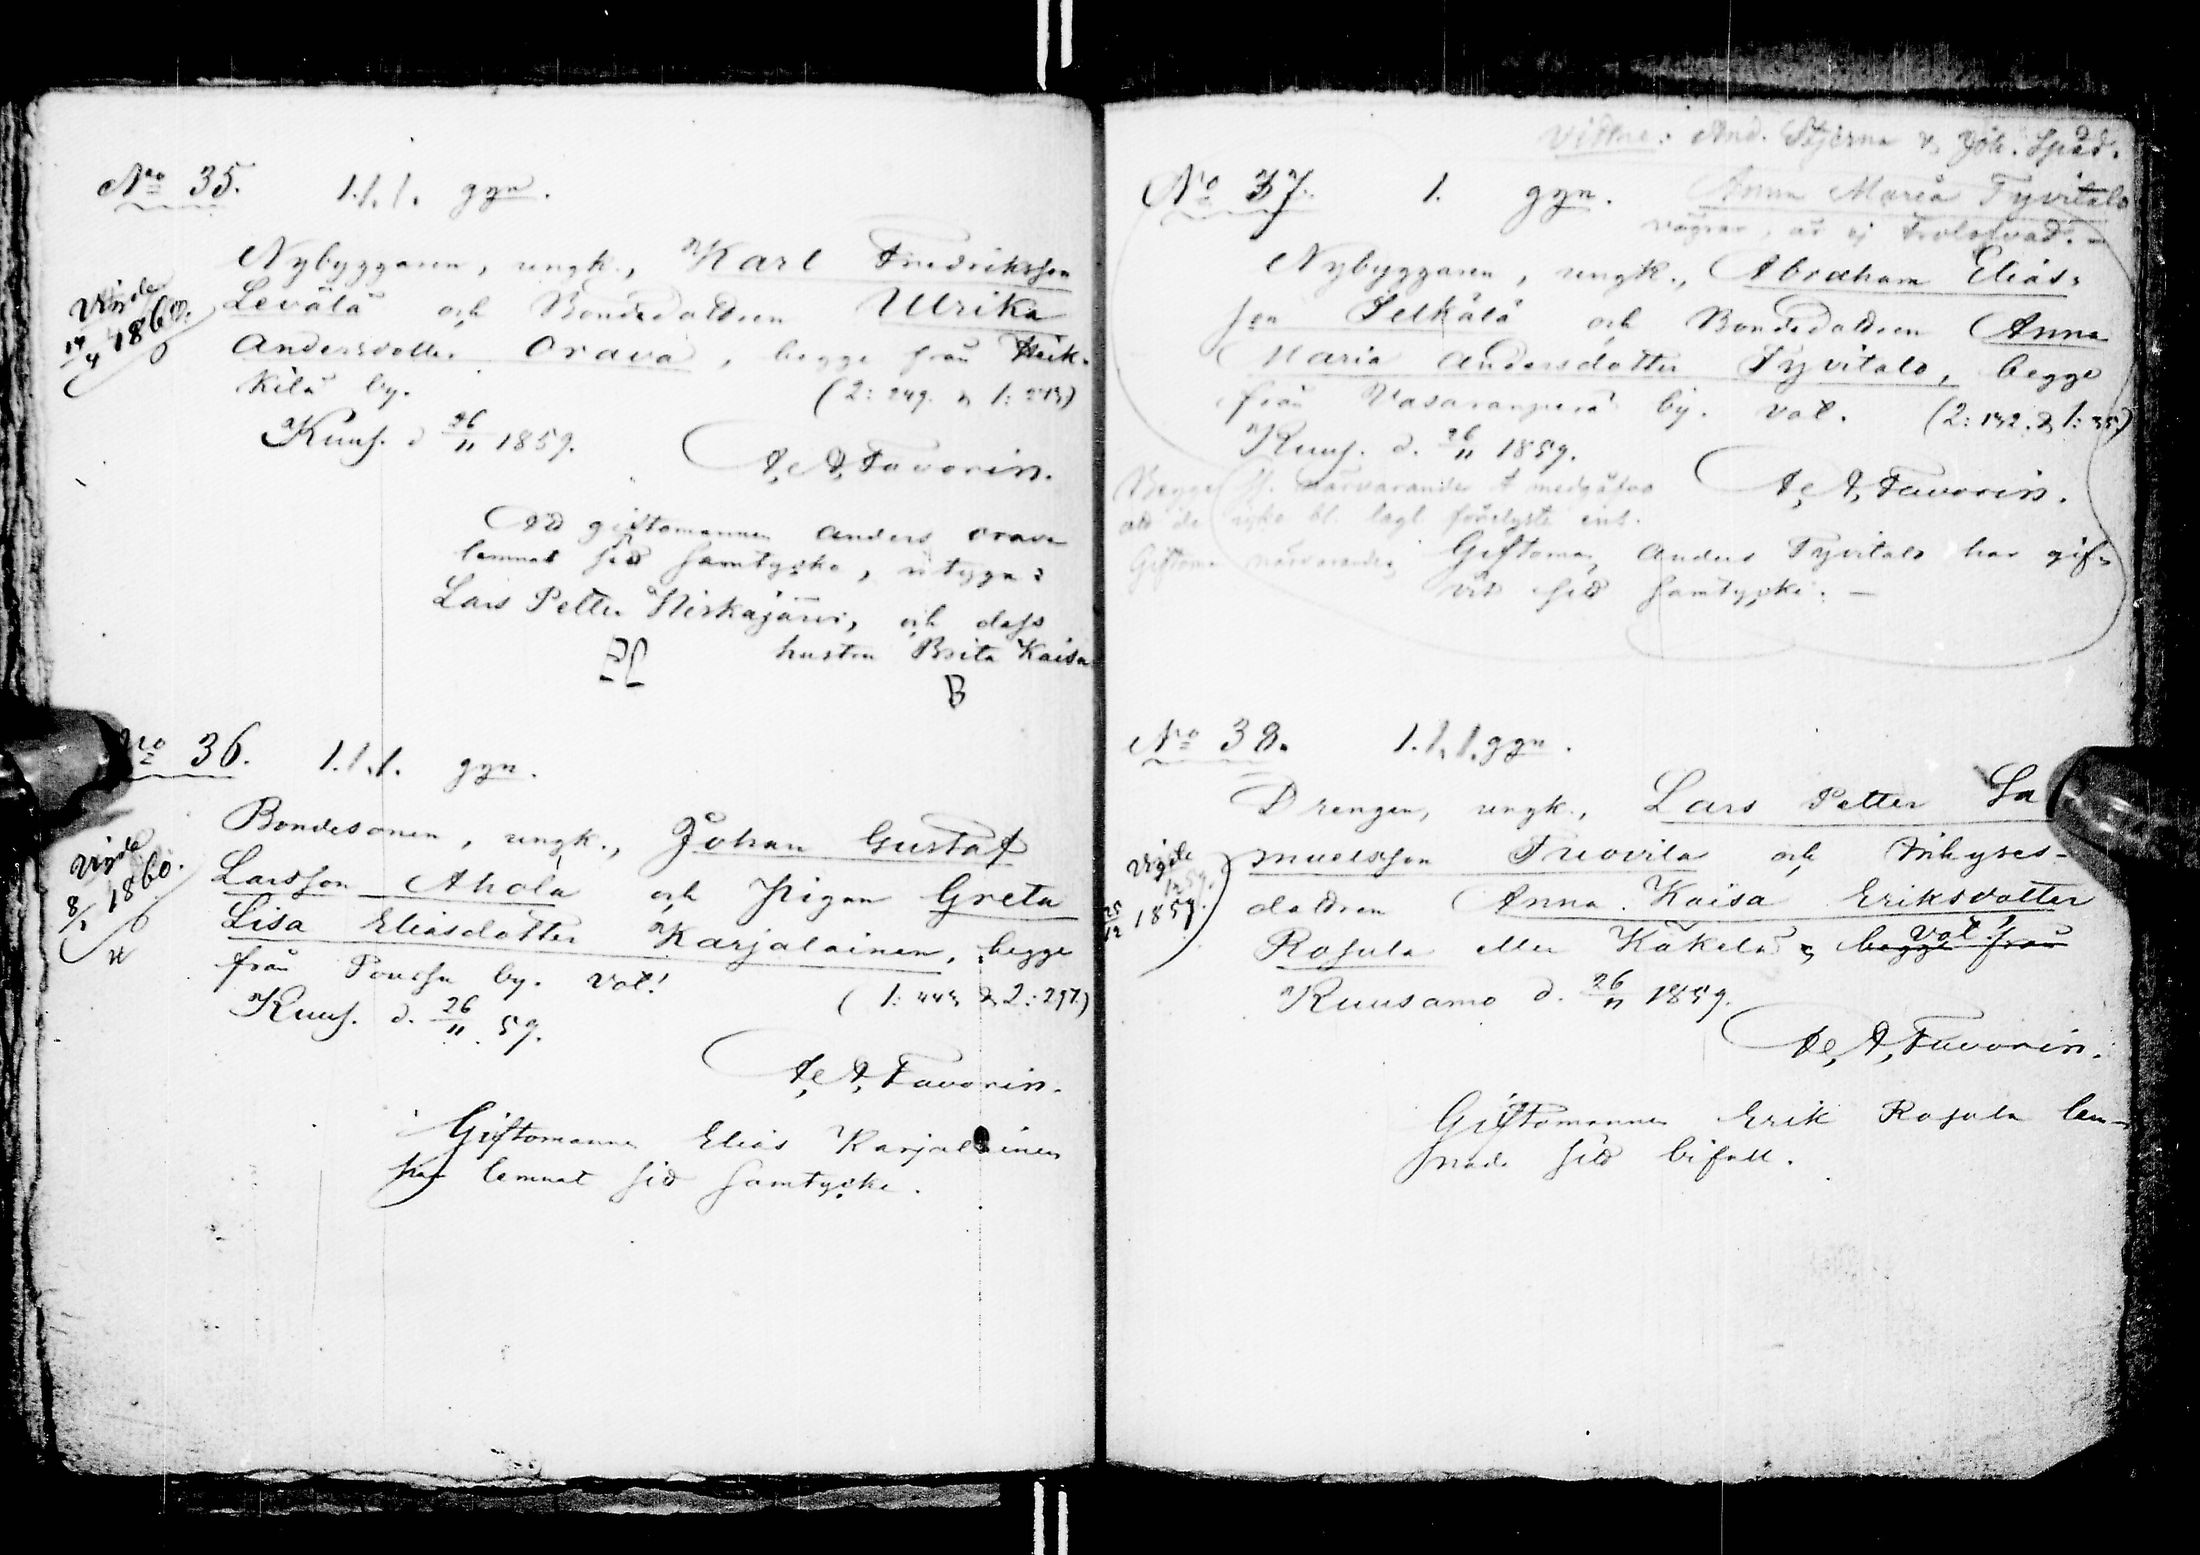 No 35. 1. 1. 1. ggn.
Nybyggaren, ungk., Karl Fredriksson
Levälä och Bondedottren Ulrika
Andersdotter Orava, begge från Heik-
kilä by. (2: 249. & 1: 213)
Vigde 14/4 1860.
Kuus. d 26/11 1859.
A. A. Favorin.
Att giftomannen Anders Orava
lemnat sitt samtycke, intyga:
Lars Petter Hiskajärvi, och dess
hustru Brita Kaisa
PL B
No 36. 1. 1. 1. ggn.
Bondesonen, ungk., Johan Gustaf
Larsson Ahola och Pigan Greta
Lisa Eliasdotter Karjalainen, begge
från Poussu by. Vol!
(1: 443 & 2: 257.)
Vigde 8/1 1860.
Kuus. d. 26/11 59.
A. A. Favorin.
Giftomannen Elias Karjalainen
har lemnat sitt samtycke.
Vittne: And. Stjerna & Joh. Spåd.
No 37. 1. ggn. Anna Maria Tyvitalo
vägrar, är ej trolofvad. -
Nybyggaren, ungk., Abraham Elias-
son Selkälä och Bondedottren Anna
Maria Andersdotter Tyvitalo, begge
från Vasaraperä by. Vol. (2: 142. & 1: 35)
Kuus. d. 26/11 1859.
A. A. Favorin.
Begge närvarande & medgåfvo
att de bl. lagl. förelyste
Giftom närvarande
Giftoman Anders Tyvitalo har gif-
vit sitt samtycke. -
No 38. 1. 1. 1. ggn.
Drengen, ungk., Lars Petter Sa
muelsson Tuovila och Inhyses-
dottren Anna Kaisa Eriksdotter
Vigde 25/12 1859.
Rosula eller Käkelä, begge från Vol!
Kuusamo d. 26/11 1859.
A. A. Favorin.
Giftomannen Erik Rosula lem-
nade sitt bifall.